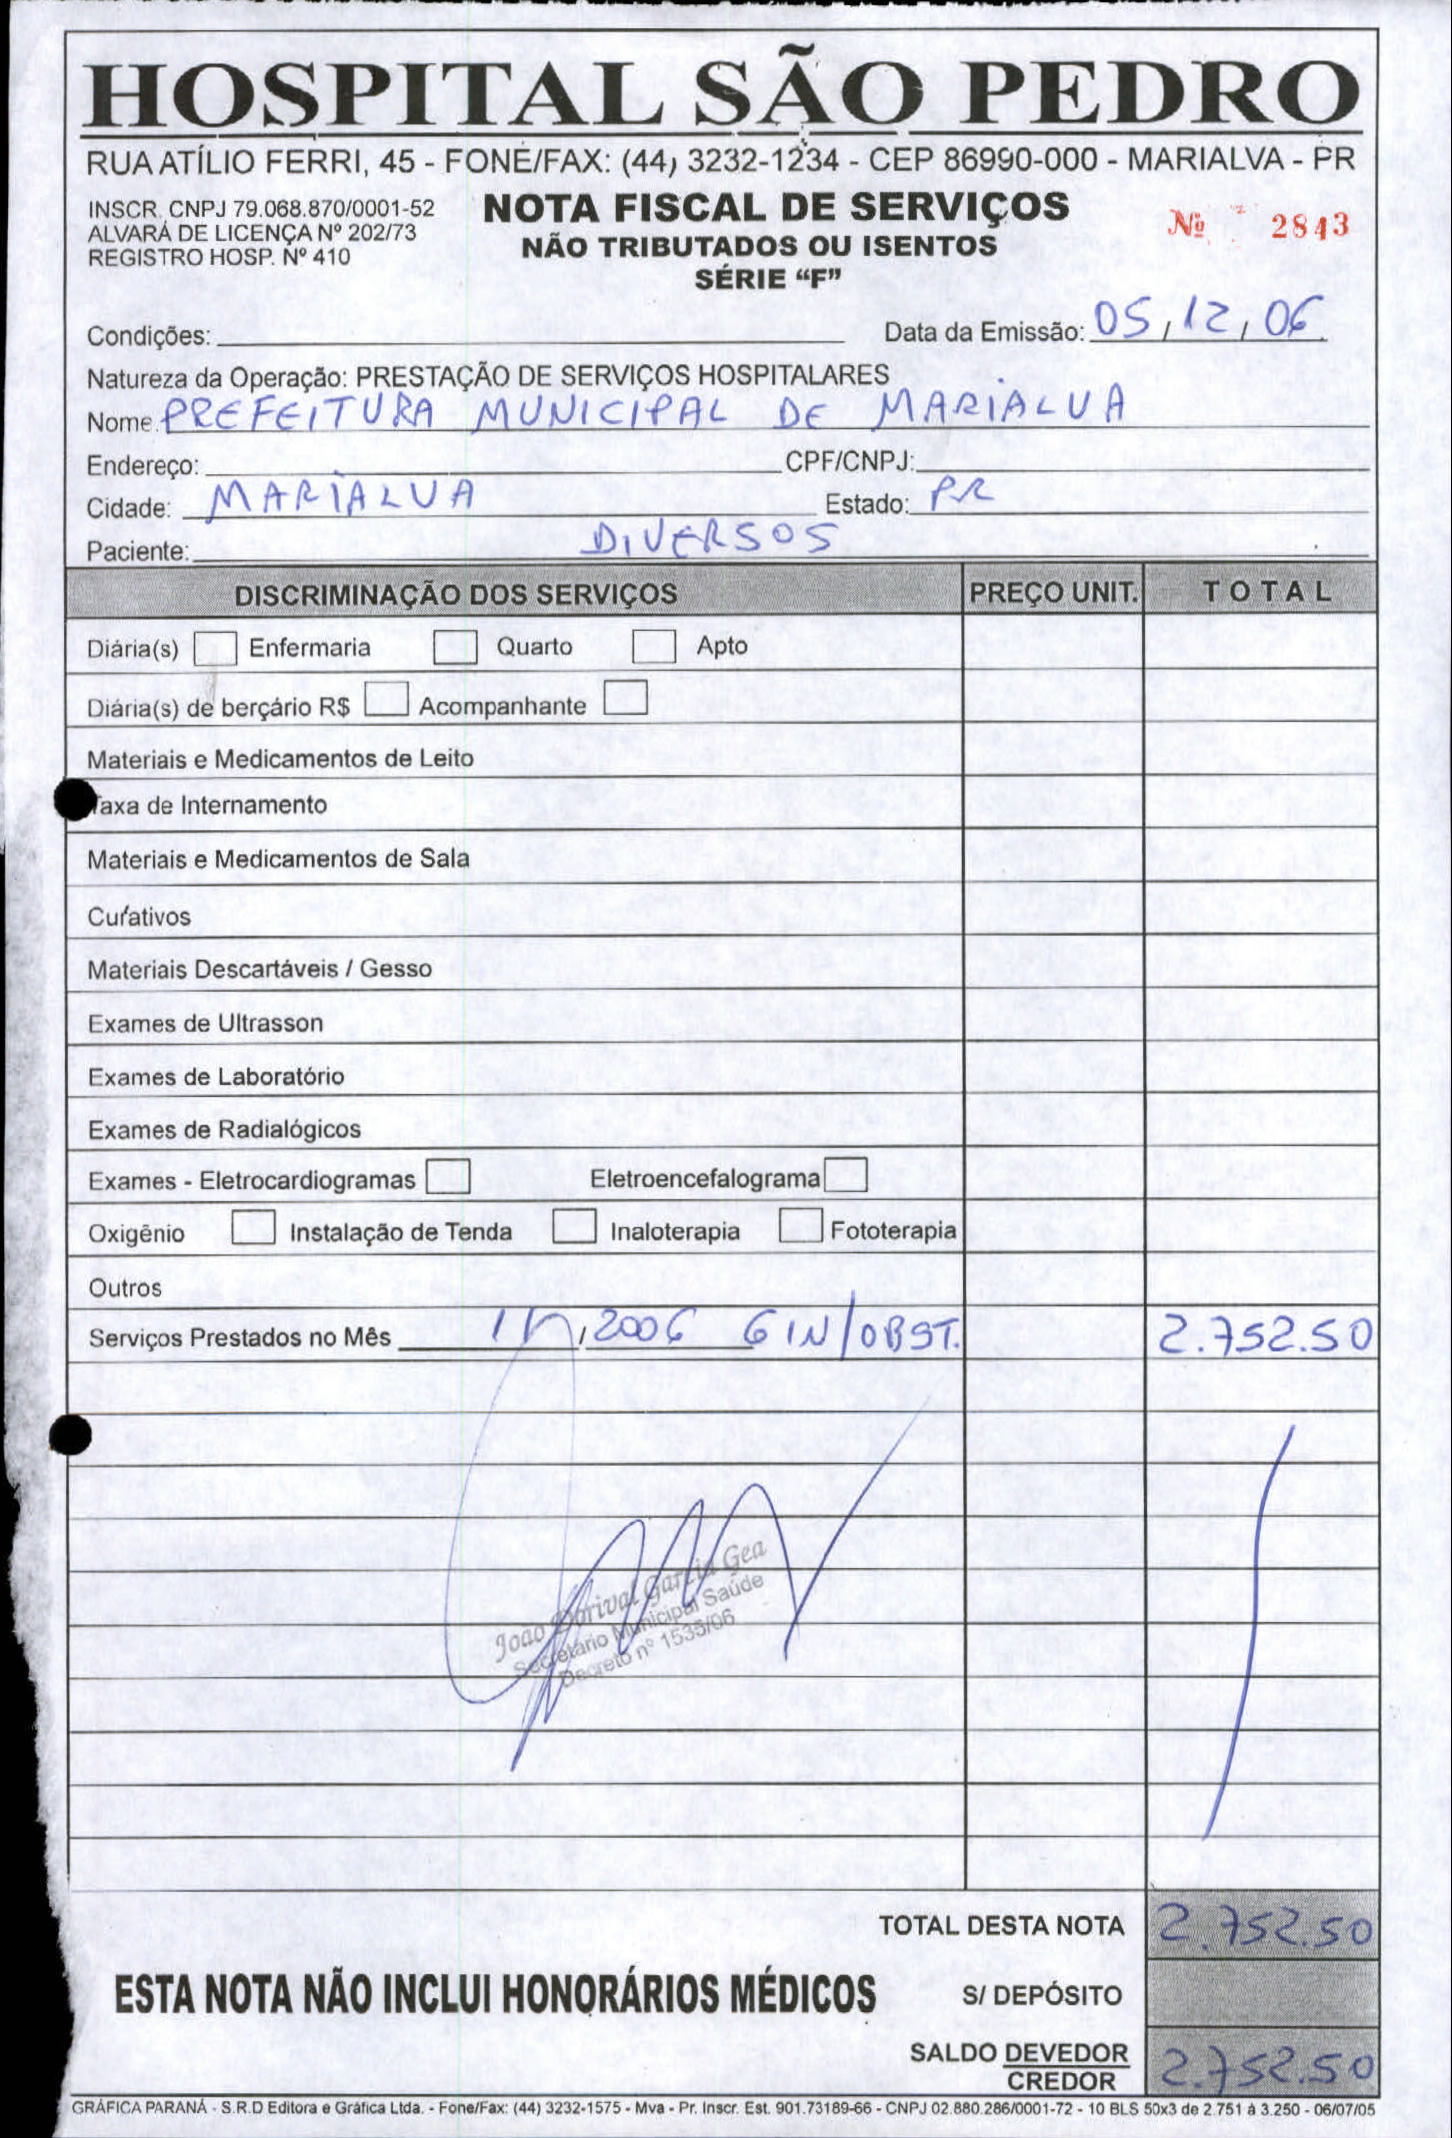 HOSPITAL SÃO PEDRO
RUA ATÍLIO FERRI, 45 - FONE/FAX: (44) 3232-1234 - CEP 86990-000 - MARIALVA - PR
INSCR. CNPJ 79.068.870/0001-52
ALVARÁ DE LICENÇA Nº 202/73
REGISTRO HOSP. Nº 410
NOTA FISCAL DE SERVIÇOS
NÃO TRIBUTADOS OU ISENTOS
SÉRIE “F”
Nº 2843
Condições:
Data da Emissão: 05/12/06
Natureza da Operação: PRESTAÇÃO DE SERVIÇOS HOSPITALARES
Nome: PREFEITURA MUNICIPAL DE MARIALVA
Endereço: CPF/CNPJ:
Cidade: MARIALVA Estado: PR
Paciente: DIVERSOS
DISCRIMINAÇÃO DOS SERVIÇOS PREÇO UNIT. TOTAL
Diária(s) Enfermaria Quarto Apto
Diária(s) de berçário R$ Acompanhante
Materiais e Medicamentos de Leito
Taxa de Internamento
Materiais e Medicamentos de Sala
Curativos
Materiais Descartáveis / Gesso
Exames de Ultrasson
Exames de Laboratório
Exames de Radialógicos
Exames - Eletrocardiogramas Eletroencefalograma
Oxigênio Instalação de Tenda Inaloterapia Fototerapia
Outros
Serviços Prestados no Mês /2006 GIN/OBST. 2.752.50
João Dorival Garcia Gea
Secretário Municipal Saúde
Decreto nº 1535/06
TOTAL DESTA NOTA 2.752.50
ESTA NOTA NÃO INCLUI HONORÁRIOS MÉDICOS
S/ DEPÓSITO
SALDO DEVEDOR
CREDOR 2.752.50
GRÁFICA PARANÁ - S.R.D Editora e Gráfica Ltda. - Fone/Fax: (44) 3232-1575 - Mva - Pr. Inscr. Est. 901.73189-66 - CNPJ 02.880.286/0001-72 - 10 BLS 50x3 de 2.751 á 3.250 - 06/07/05